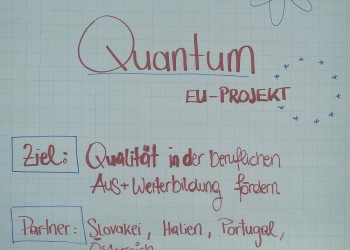 Quantum
EU-PROJEKT
Ziel: Qualität in der beruflichen
Aus+Weiterbildung fördern
Partner: Slovakei, Italien, Portugal,
Österreich